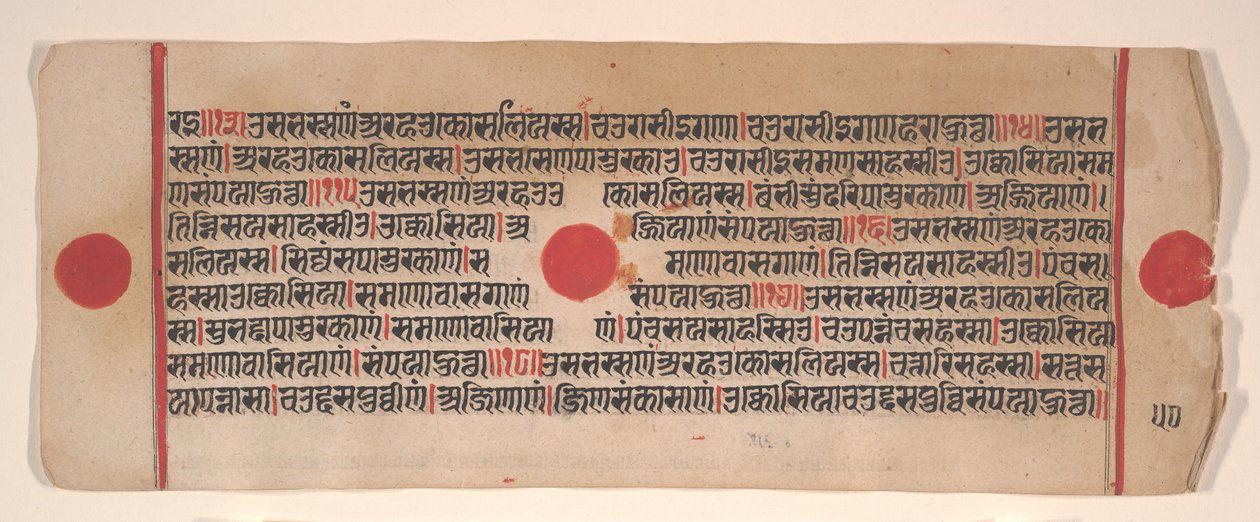 रइ॥१३॥उसभस्सणंअरहउकोसलियस्स।चउरासीइगणा।चउरासीइगणहराहुत्था॥१४॥उसभ
स्सणं।अरहउकोसलियस्स।उसभसेणपामुरकाउ।चउरासीइसमणसाहस्सीउ।उक्कोसियासम
णसंपयाहुत्था॥१५उसभस्सणंअरहउ कोसलियस्स।बंभीसुंदरिपामुरकाणं।अज्जियाणं।।
तिन्निसयसाहस्सीउ।उक्कोसिया।अ ज्जियाणंसंपयाहुत्था॥१६॥उसभस्सणंअरहउको
सलियस्स।सिज्जंसपामुरकाणं।स मणोवासगाणं।तिन्निसयसाहस्सीउ।पंचस
हस्साउक्कोसिया।समणोवासगाणं संपयाहुत्था॥१७॥उसभस्सणंअरहउकोसलिय
स्स।सुभद्दापामुरकाणं।समणोवासिया णं।पंचसयसाहस्सिउ।चउपन्नंचसहस्सा।उक्कोसिया
समणोवासियाणं।संपयाहुत्था॥१८॥उसभस्सणंअरहउकोसलियस्स।चत्तारिसहस्सा।सत्तस
यापन्नासा।चउद्दसपुव्वीणं।अजिणाणं।जिणसंकासाणं।उक्कोसियाचउद्दसपुव्विसंपयाहुत्था॥